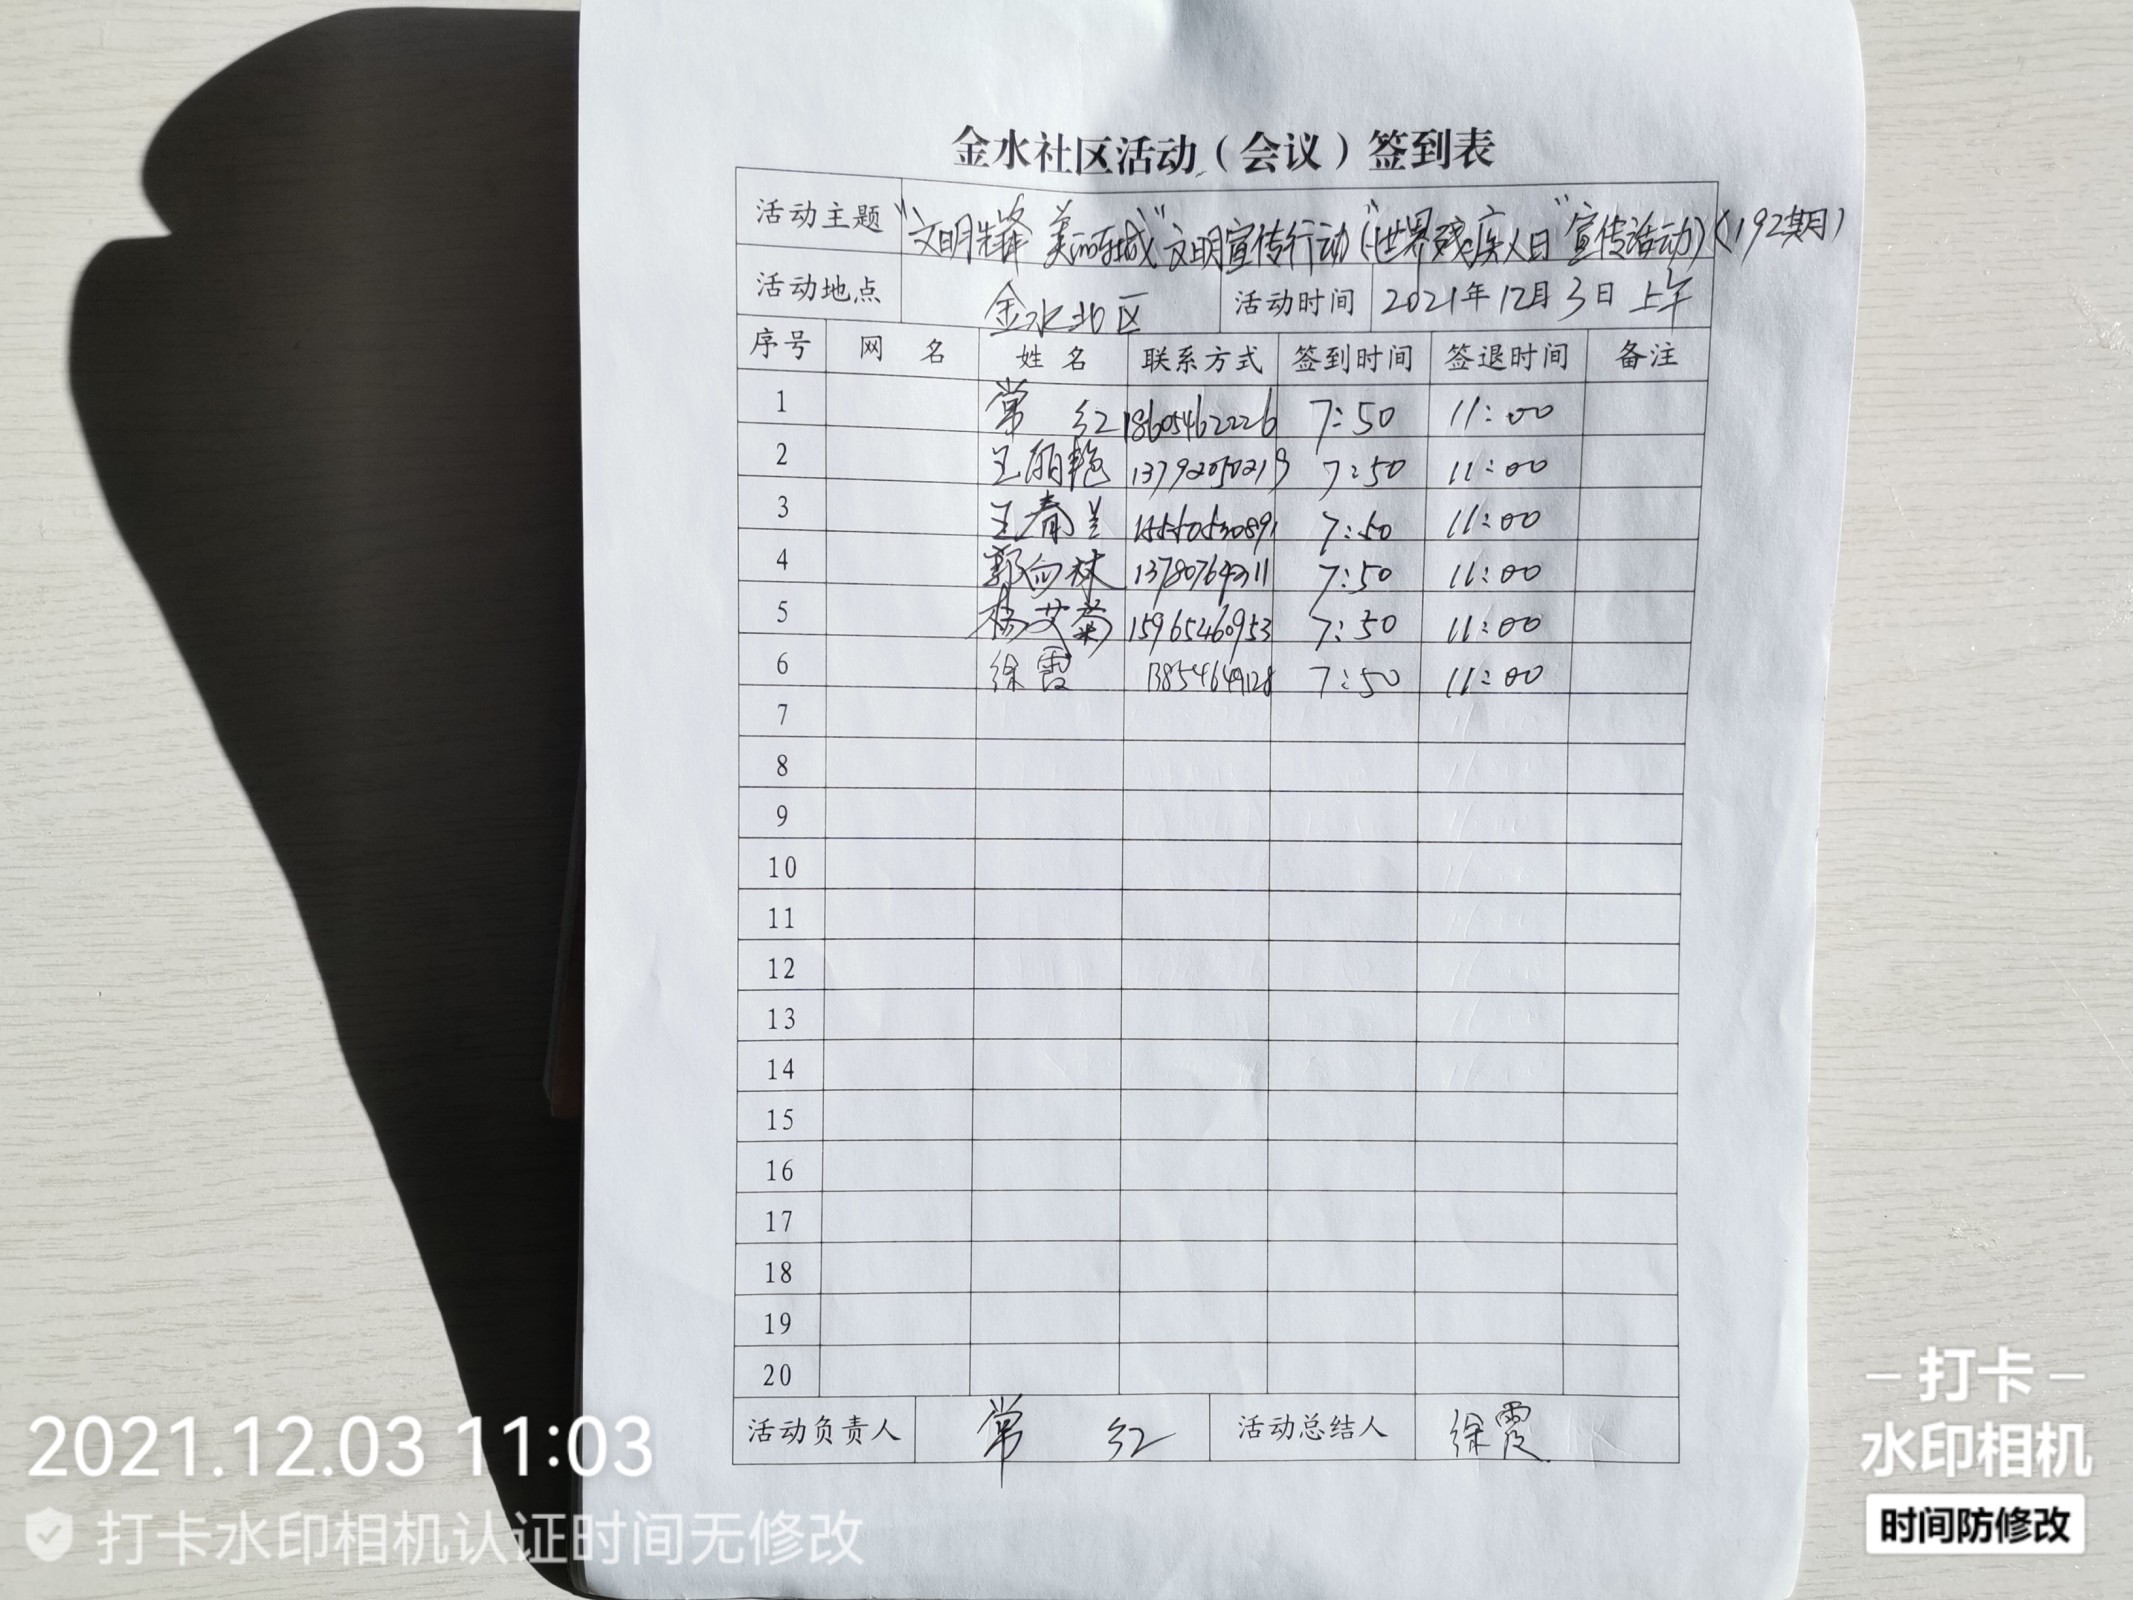 金水社区活动（会议）签到表
活动主题 “文明先锋 美丽东城”文明宣传行动（“世界残疾人日”宣传活动）（192期）
活动地点 金水北区 活动时间 2021年12月3日上午
序号 网 名 姓 名 联系方式 签到时间 签退时间 备注
1 常 红 18605462226 7:50 11:00
2 王丽艳 13792050219 7:50 11:00
3 王春兰 15550530891 7:50 11:00
4 郭向林 13780764311 7:50 11:00
5 杨艾菊 15965460953 7:50 11:00
6 徐霞 13854649128 7:50 11:00
7
8
9
10
11
12
13
14
15
16
17
18
19
20
活动负责人 常 红 活动总结人 徐霞
2021.12.03 11:03
打卡水印相机认证时间无修改
打卡
水印相机
时间防修改